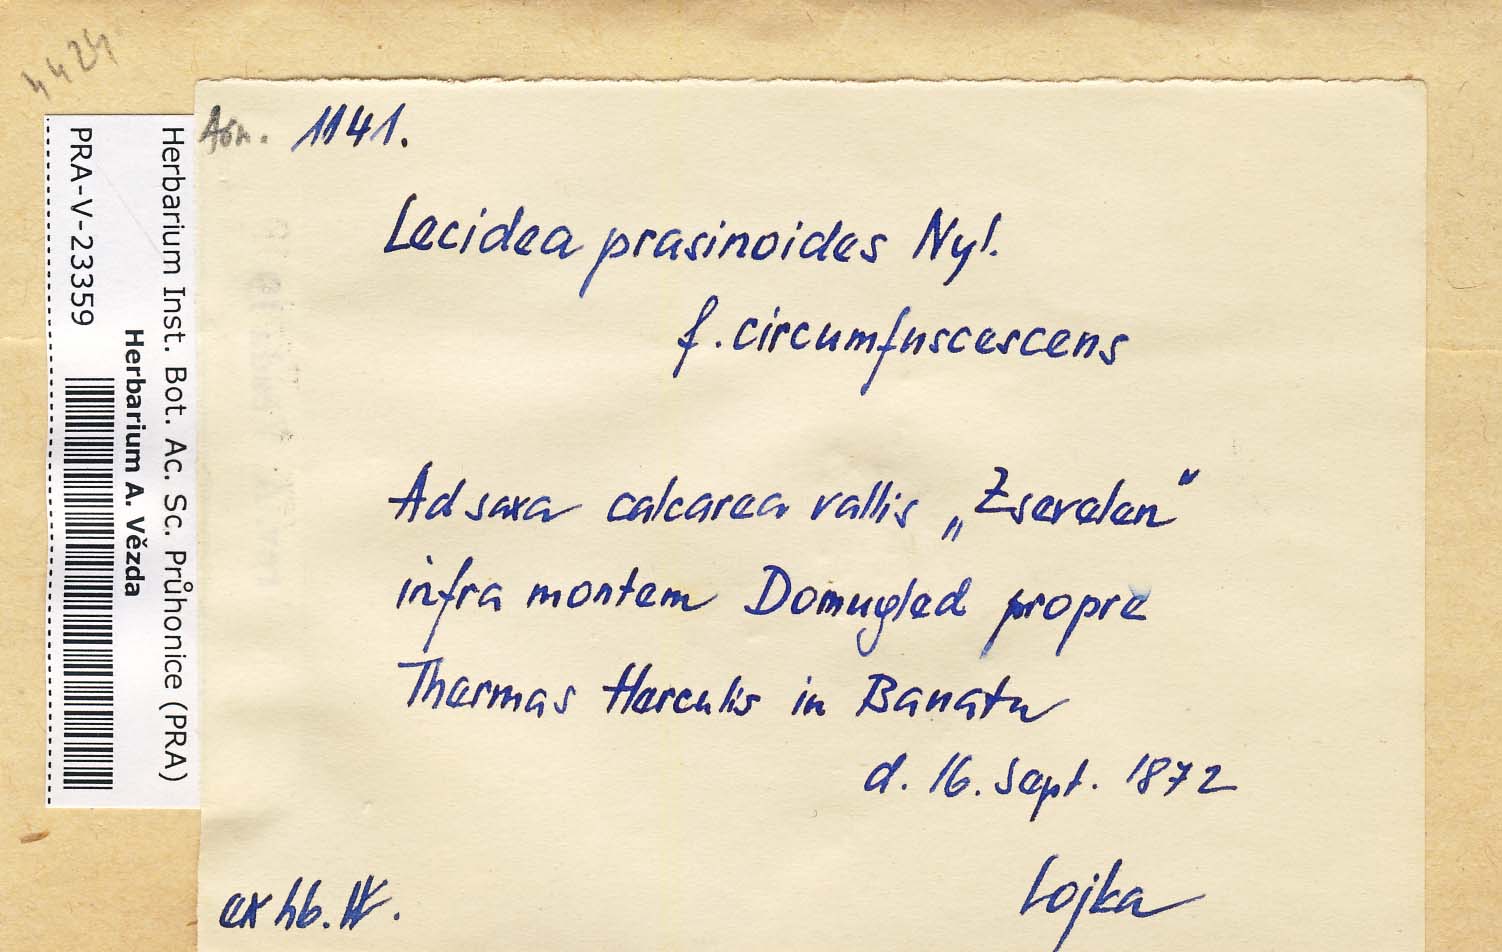 4424
Herbarium Inst. Bot. Ac. Sc. Průhonice (PRA)
Herbarium A. Vězda
PRA-V-23359
1141.
Lecidea prasinoides Nyl.
f. circumfuscescens
Ad saxa calcarea vallis „Zserelen“
infra montem Domugled propre
Thermas Herculis in Banatu
d. 16. Sept. 1872
Lojka
ex hb. W.